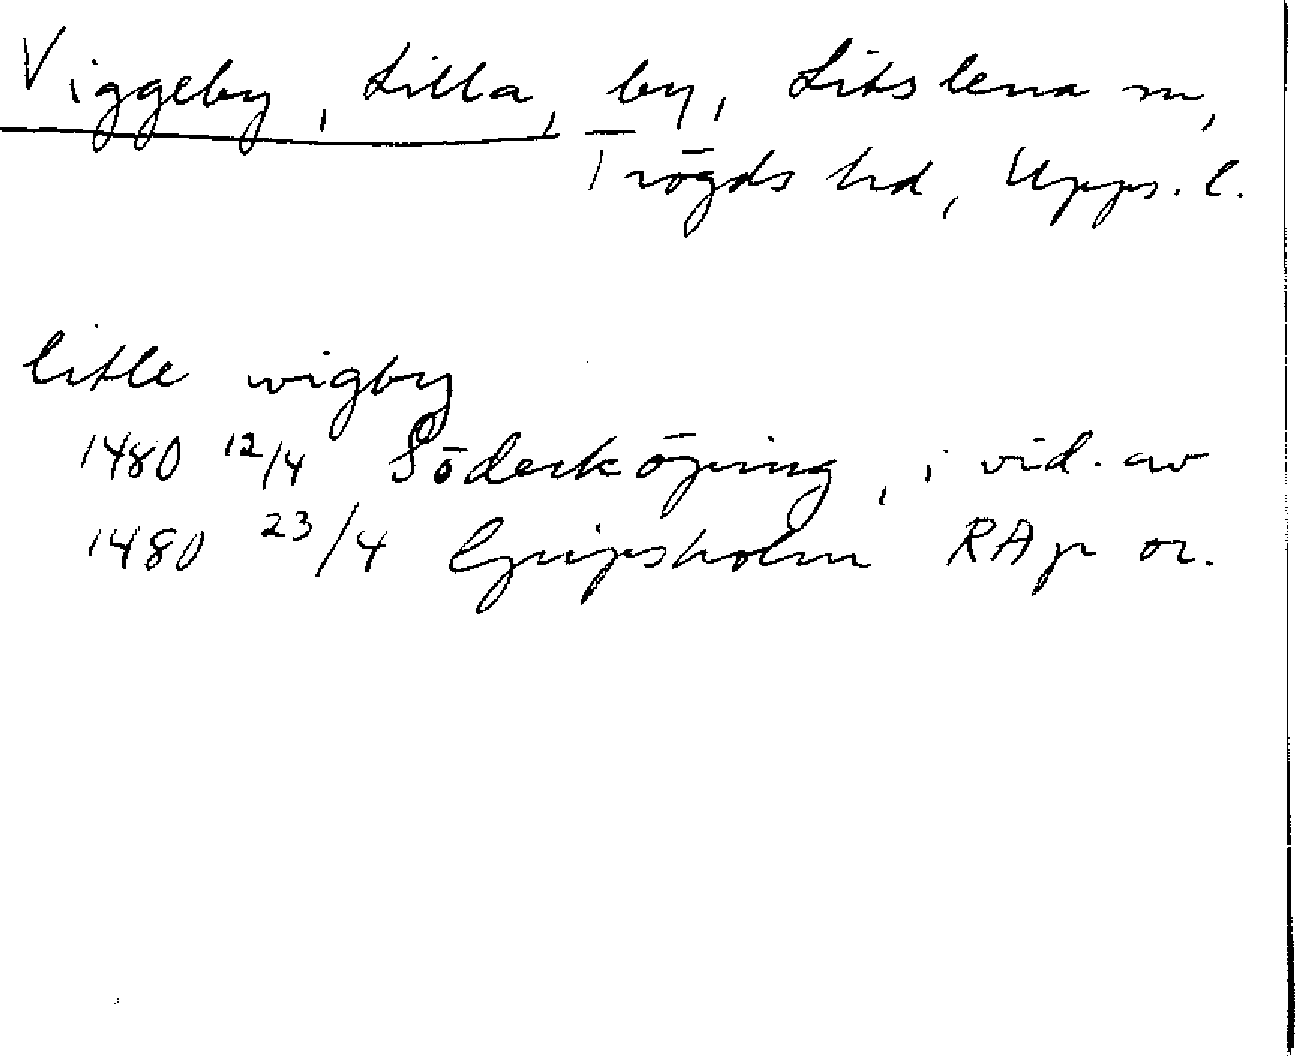 Viggeby, Lilla, by, Litslena sn,
Trögds hd, Upps. l.
litle wigby
1480 12/4 Söderköping, i vid. av
1480 23/4 Gripsholm RAp or.